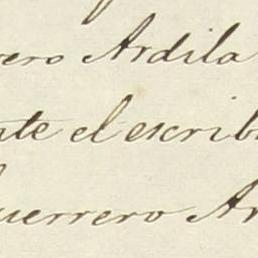 rero Ardila
nte el escrib
uerrero Ar